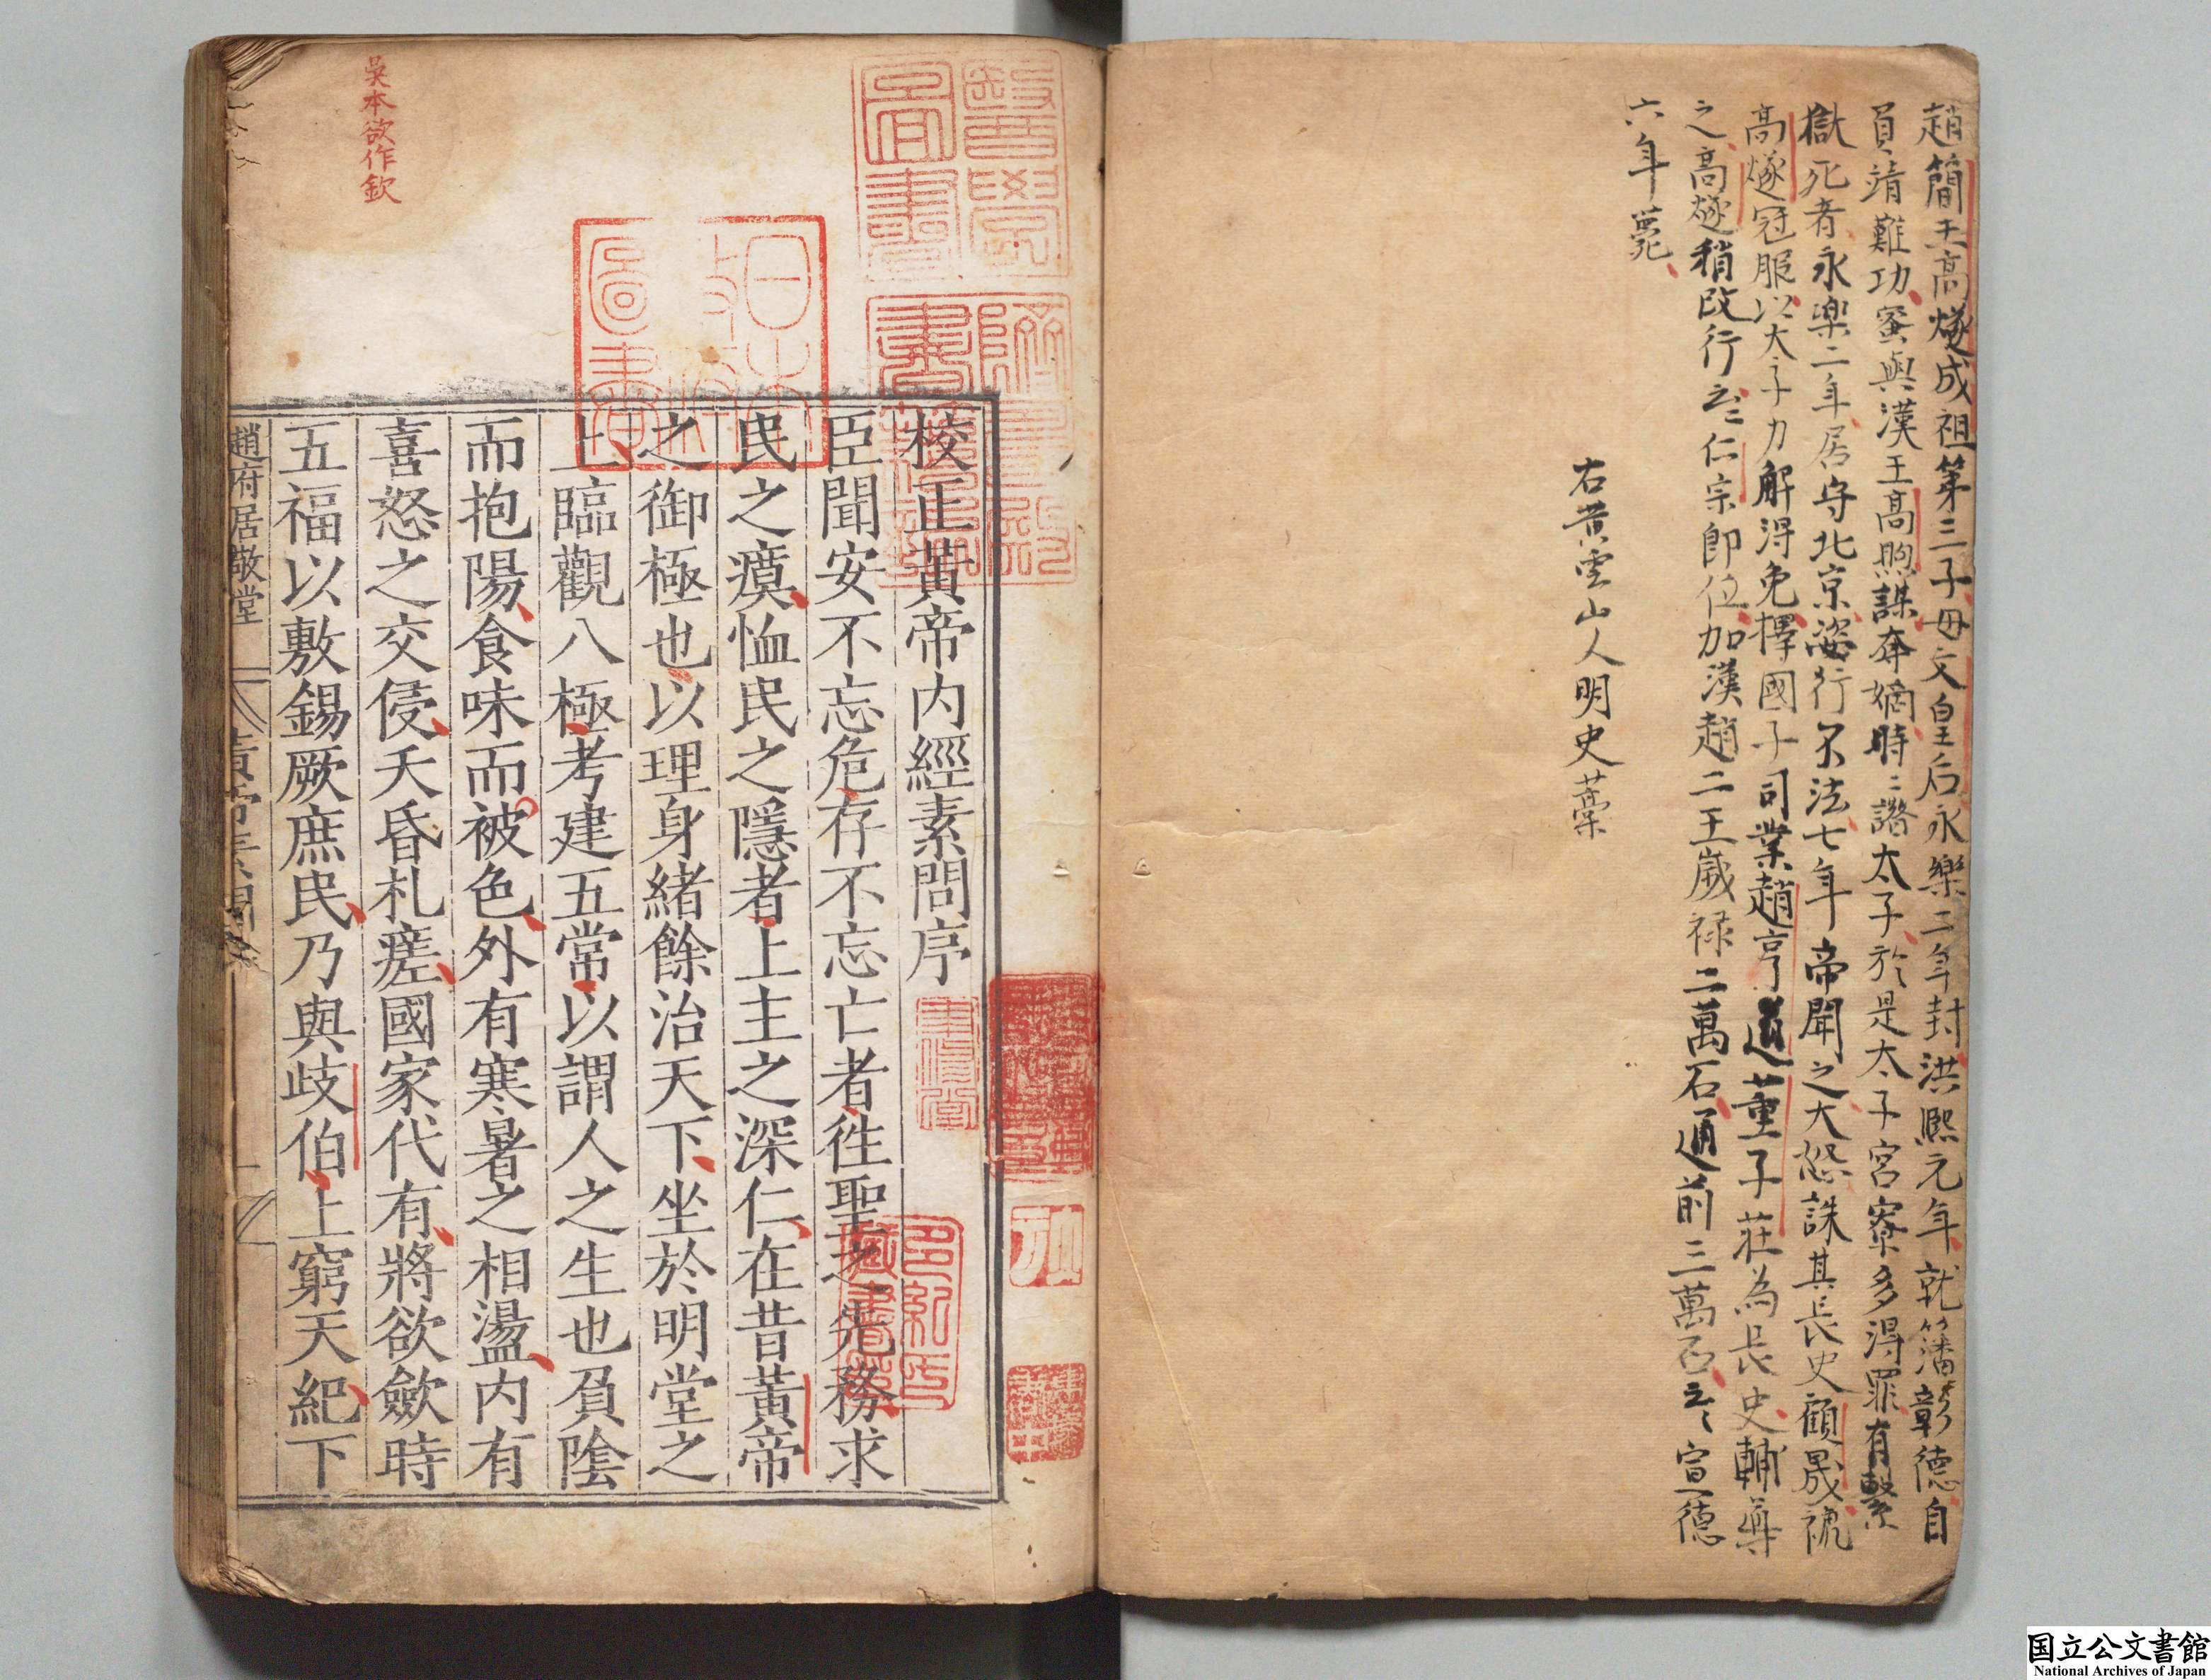 趙簡王高燧成祖第三子母文皇后永樂二年封洪熙元年就籓彰德自
負靖難功蜜與漢王高煦謀奪嫡時〻譖太子於是太子宮寮多得罪有繫
獄死者永樂二年居守北京恣行不法七年帝聞之大怒誅其長史顧晟褫
高燧冠服以太子力解得免擇國子司業趙亨道董子莊為長史輔導
之高燧稍改行云〻仁宗即位加漢趙二王歲祿二萬石通前三萬石云〻宣德
六年薨
右黃雲山人明史藁
吳本欲作欽
校正黃帝内經素問序
臣聞安不忘危存不忘亡者徃聖之先務求
民之瘼恤民之隱者上主之深仁在昔黃帝
之御極也以理身緒餘治天下坐於明堂之
上臨觀八極考建五常以謂人之生也負陰
而抱陽食味而被色外有寒暑之相盪内有
喜怒之交侵夭昏札瘥國家代有將欲斂時
五福以敷錫厥庶民乃與歧伯上窮天紀下
趙府居敬堂
醫學圖書
日本政府圖書
国立公文書館
National Archives of Japan